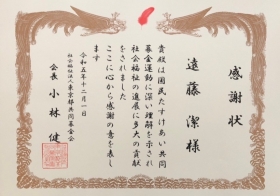 感謝状
遠藤 潔様
貴殿は国民たすけあい共同
募金運動に深い理解を示され
社会福祉の進展に多大の貢献
をされました
ここに心から感謝の意を表し
ます
令和五年十二月一日
社会福祉法人東京都共同募金会
会長 小林 健